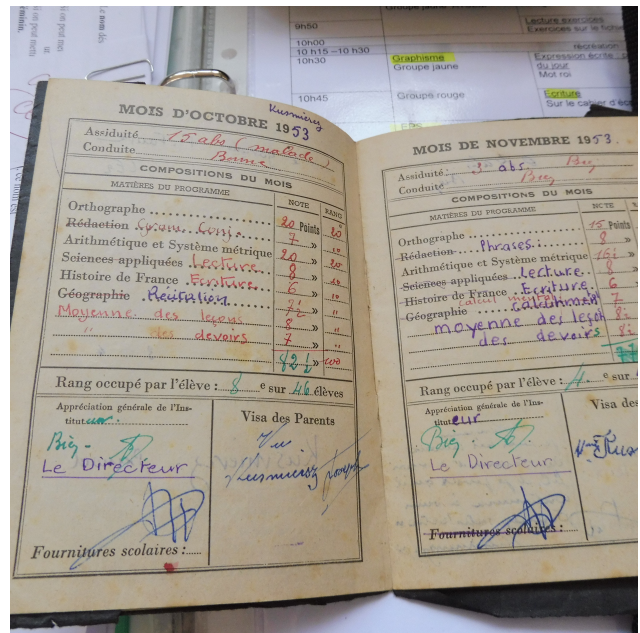 9h50
10h00
10 h15 –10 h30
10h30
10h45
Groupe jaune
Graphisme
Groupe jaune
Groupe rouge
Lecture exercices
Exercices sur le fichie
récréation
Expression écrite :
du jour
Mot roi
Ecriture
Sur le cahier d'éc
Kusmierez
MOIS D'OCTOBRE 1953
Assiduité 15 abs (malade)
Conduite Bonne
COMPOSITIONS DU MOIS
MATIÈRES DU PROGRAMME NOTE RANG
Orthographe 20 Points 20
Rédaction Gram. Conj. 7 » "
Arithmétique et Système métrique 20 » 20
Sciences appliquées Lecture 8 » 10
Histoire de France Ecriture 6 » 10
Géographie Récitation 7½ » "
Moyenne des leçons 8 » "
" des devoirs 7 » "
82½ » 100
Rang occupé par l'élève : 8 e sur 46 élèves
Appréciation générale de l'Ins-
tituteur.
Bien.
Le Directeur
Visa des Parents
Vu
Kusmierez Joseph
Fournitures scolaires :
MOIS DE NOVEMBRE 1953.
Assiduité : 3 abs. Bien
Conduite Bien
COMPOSITIONS DU MOIS
MATIÈRES DU PROGRAMME NOTE
Orthographe 15 Points
Rédaction Phrases : 8 »
Arithmétique et Système métrique 16½ »
Sciences appliquées Lecture 8 »
Histoire de France Ecriture 6 »
Géographie calcul mental 7 »
moyenne des leçon 8½
des devoirs 8½
77
Rang occupé par l'élève : 4 e sur
Appréciation générale de l'Ins-
tituteur
Bien.
Le Directeur
Visa des
Fournitures scolaires :